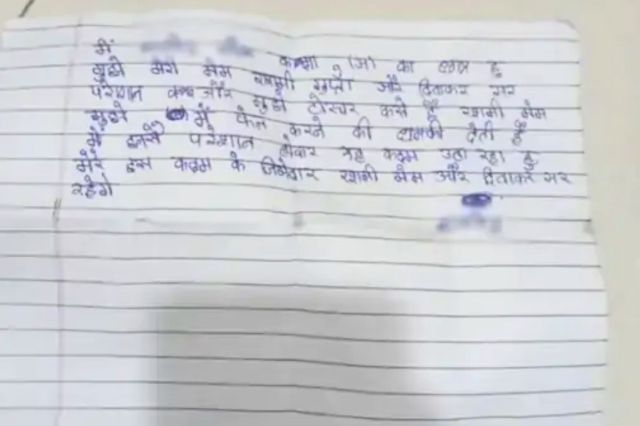 मैं कक्षा (अ) का छात्र हूं
मुझे मेरी मेम स्वाती गुप्ता और दिवाकर सर
परेशान करते और मुझे टोरचर करते हैं स्वाती मेम
मुझे में फेल करने की धमकी देती है
मैं इनसे परेशान होकर यह कदम उठा रहा हूं
मेरे इस कदम के जिम्मेदार स्वाती मेम और दिवाकर सर
रहेंगे